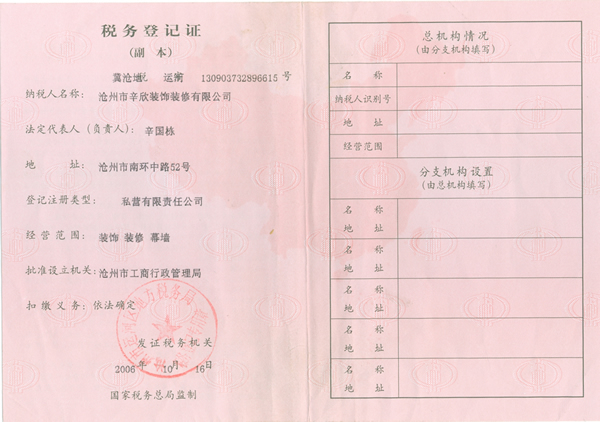 税务登记证
(副 本)
冀沧地税 运衡 130903732896615 号
纳税人名称: 沧州市辛欣装饰装修有限公司
法定代表人(负责人): 辛国栋
地 址: 沧州市南环中路52号
登记注册类型: 私营有限责任公司
经营范围: 装饰 装修 幕墙
批准设立机关: 沧州市工商行政管理局
扣缴义务: 依法确定
发证税务机关
2006 年 10 月 16 日
国家税务总局监制
总机构情况
(由分支机构填写)
名 称
纳税人识别号
地 址
经营范围
分支机构设置
(由总机构填写)
名 称
地 址
名 称
地 址
名 称
地 址
名 称
地 址
名 称
地 址